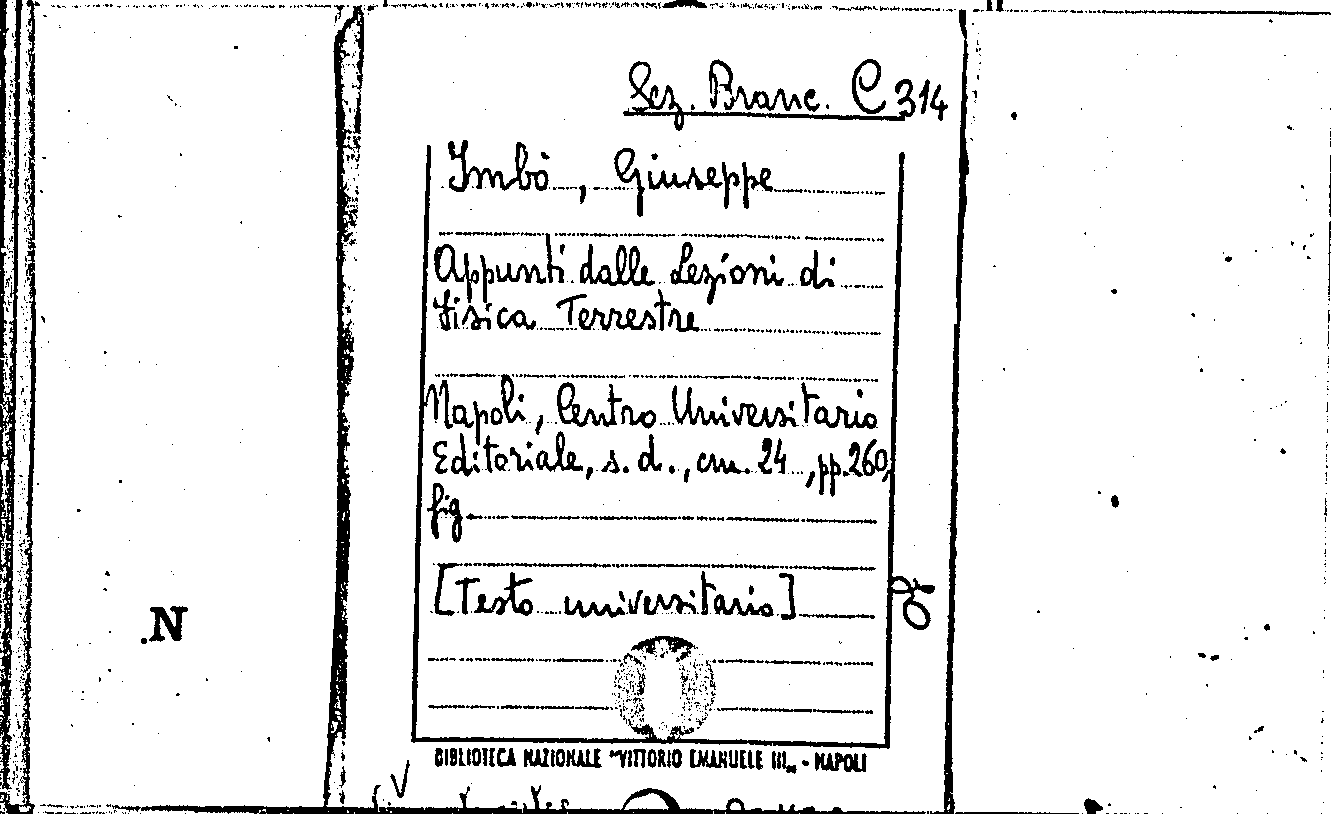 Sez. Branc. C 314
Imbò, Giuseppe
Appunti dalle Lezioni di
Fisica Terrestre
Napoli, Centro Universitario
Editoriale, s. d., cm. 24, pp. 260,
fig.
[Testo universitario]
N
BIBLIOTECA NAZIONALE "VITTORIO EMANUELE III" - NAPOLI